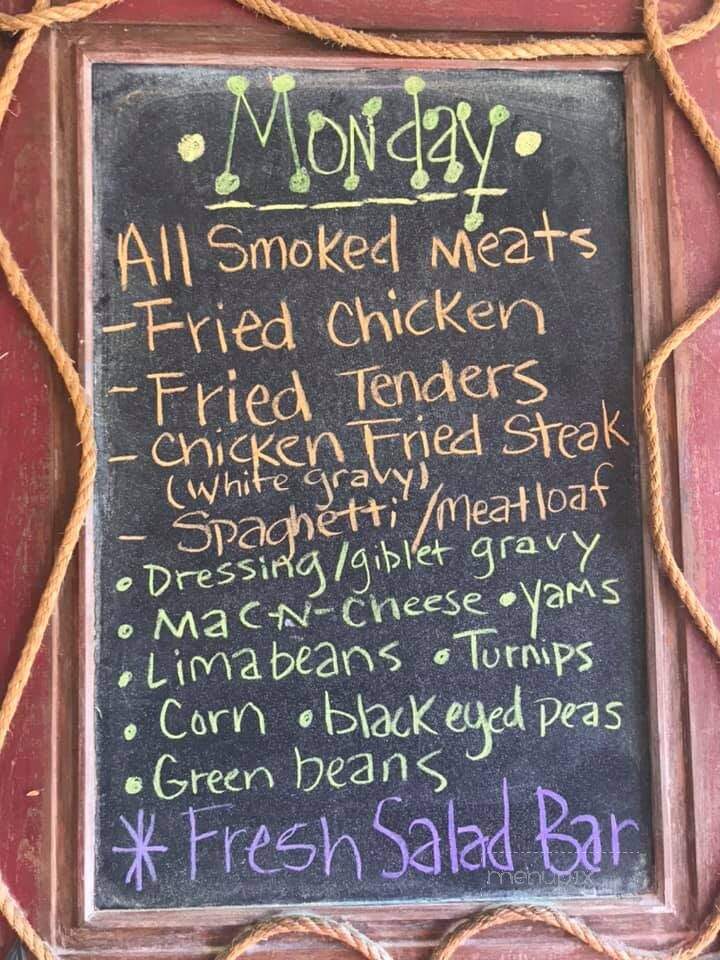 • Monday •
All Smoked Meats
- Fried Chicken
- Fried Tenders
- Chicken Fried Steak
(white gravy)
- Spaghetti /meatloaf
• Dressing/giblet gravy
• Mac-N-Cheese • Yams
• Lima beans • Turnips
• Corn • black eyed peas
• Green beans
* Fresh Salad Bar
menupix